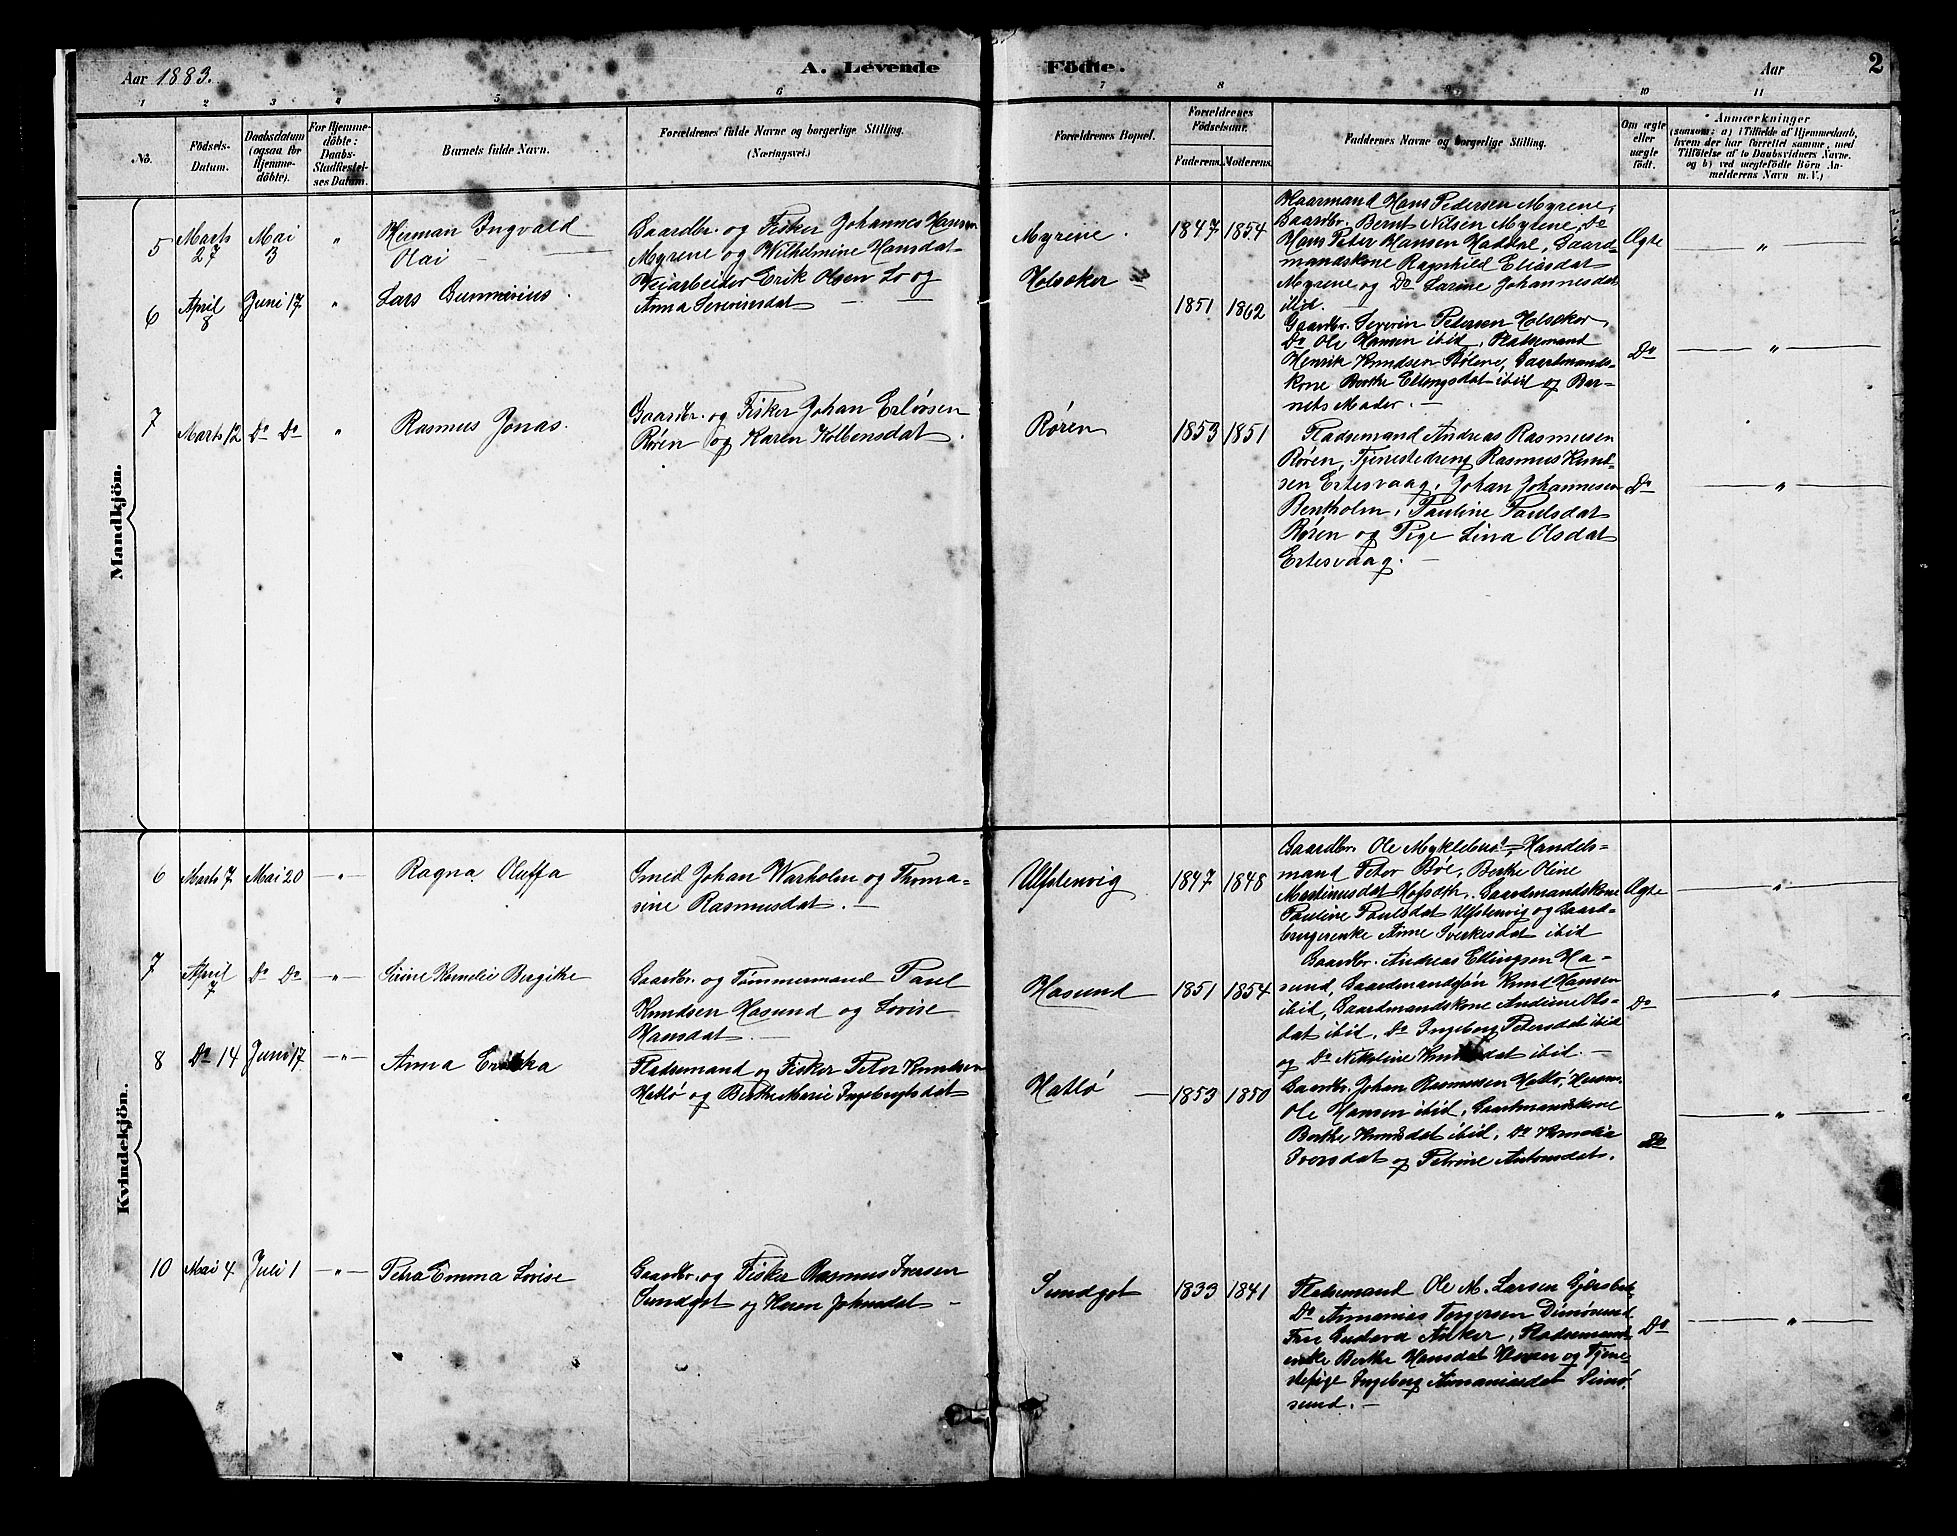 Aar 1883.
A. Levende Födte.
Aar
2
1 2 3 4 5 6 7 8 9 10 11
No.
Födsels-
Datum.
Daabsdatum
(ogsaa for
Hjemme-
döbte).
For Hjemme-
döbte:
Daabs-
Stadfæstel-
ses Datum.
Barnets fulde Navn.
Forældrenes fulde Navne og borgerlige Stilling.
(Næringsvei.)
Forældrenes Bopæl.
Forældrenes
Födselsaar.
Faderens. Moderens.
Faddernes Navne og borgerlige Stilling.
Om ægte
eller
uægte
födt.
Anmærkninger
(saasom: a) i Tilfælde af Hjemmedaab,
hvem der har forrettet samme, med
Tilföielse af to Daabsvidners Navne.
og b) ved uægtefödte Börn An-
melderens Navn m. V.)
Mandkjön.
5
Marts
27
Mai
3
"
Herman Ingvald
Olai
Gaardbr. og Fisker Johannes Hansen
Myrene og Wilhelmine Hansdat
Myrene.
1847 1854
Haarmand Hans Pedersen Myrene,
Gaardbr. Bernt Nilsen Myrene, Do
Hans Peter Hansen Haddal, Gaard-
mandskone Ragnhild Eliasdat
Myrene og Do Larine Johannesdat
ibid.
Ægte
"
6
April
8
Juni 17
"
Lars Gunnerius
Veiarbeider Erik Olsen Lo og
Anna Severinsdat
Holsæker
1851 1862
Gaardbr. Severin Petersen Holsæker,
Do Ole Hansen ibid, Pladsemand
Henrik Knudsen Bølene, Gaardmands-
kone Berthe Ellingsdat ibid og Bar-
nets Moder.
Do
"
7
Marts 12
Do Do
"
Rasmus Jonas.
Gaardbr. og Fisker Johan Erlovsen
Røren og Karen Kolbensdat.
Røren
1853 1851
Pladsemand Andreas Rasmusen
Røren, Tjenestedreng Rasmus Knud-
sen Ertesvaag, Johan Johannesen
Bentholm, Pauline Paulsdat
Røren og Pige Lina Olsdat
Ertesvaag.
Do
"
Kvindekjön.
6
Marts 7.
Mai 20
"
Ragna Oluffa
Smed Johan Warholm og Thoma-
sine Rasmusdat.
Ulfstenvig
1847 1848
Gaardbr. Ole Myklebust, Handels-
mand Peter Bøe, Berthe Oline
Martinusdat Hofseth, Gaardmandskone
Pauline Paulsdat Ulfstenvig og Gaard-
brugerenke Anne Sverkesdat ibid
Ægte
"
7
April
7
Do Do
"
Sirine Kornelie Bergithe
Gaardbr. og Tømmermand Paul
Knudsen Hasund og Lovise
Hansdat.
Hasund
1851 1854
Gaardbr. Andreas Ellingsen Ha-
sund, Gaardmandssøn Knud Hansen
ibid, Gaardmandskone Andrine Ols-
dat ibid, Do Ingeborg Petersdat ibid
og Do Nikoline Knudsdat ibid.
Do
"
8
Do 14
Juni 17
"
Anna Erikka
Pladsemand og Fisker Peter Knudsen
Hatlø og Berthe Marie Ingebrigtsdat
Hatlø
1853 1850
Gaardbr. Johan Rasmusen Hatlø, Husm.
Ole Hansen ibid, Gaardmandskone
Berthe Knudsdat ibid, Do Kornelia
Iversdat og Petrine Antonsdat.
Do
"
10
Mai 4.
Juli 1
"
Petra Emma Lovise
Gaardbr. og Fisker Rasmus Iversen
Sundgot og Karen Johnsdat
Sundgot
1833 1841
Pladsemand Ole M. Larsen Gjersbak,
Do Annanias Torgersen Dimøsund
Frue Gustava Anker, Pladsemand-
enke Berthe Hansdat og Tjene-
stepige Ingeborg Annaniasdat Dimø-
sund.
Do
"